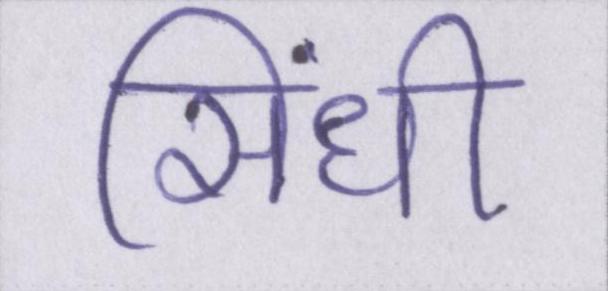 सिंधी